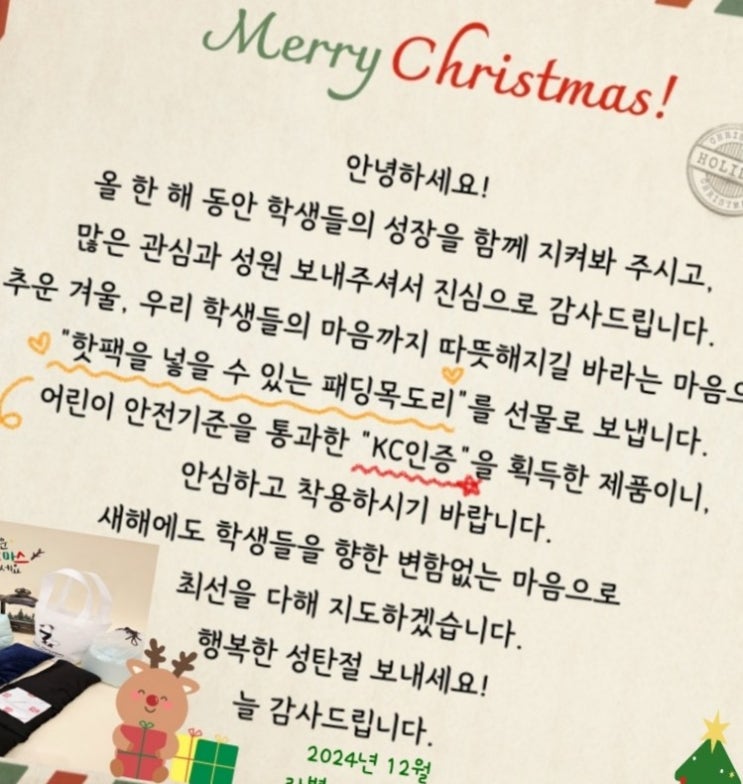 Merry Christmas!
HOLI
안녕하세요!
올 한 해 동안 학생들의 성장을 함께 지켜봐 주시고,
많은 관심과 성원 보내주셔서 진심으로 감사드립니다.
추운 겨울, 우리 학생들의 마음까지 따뜻해지길 바라는 마음으
"핫팩을 넣을 수 있는 패딩목도리"를 선물로 보냅니다.
어린이 안전기준을 통과한 "KC인증"을 획득한 제품이니,
안심하고 착용하시기 바랍니다.
새해에도 학생들을 향한 변함없는 마음으로
최선을 다해 지도하겠습니다.
행복한 성탄절 보내세요!
늘 감사드립니다.
2024년 12월